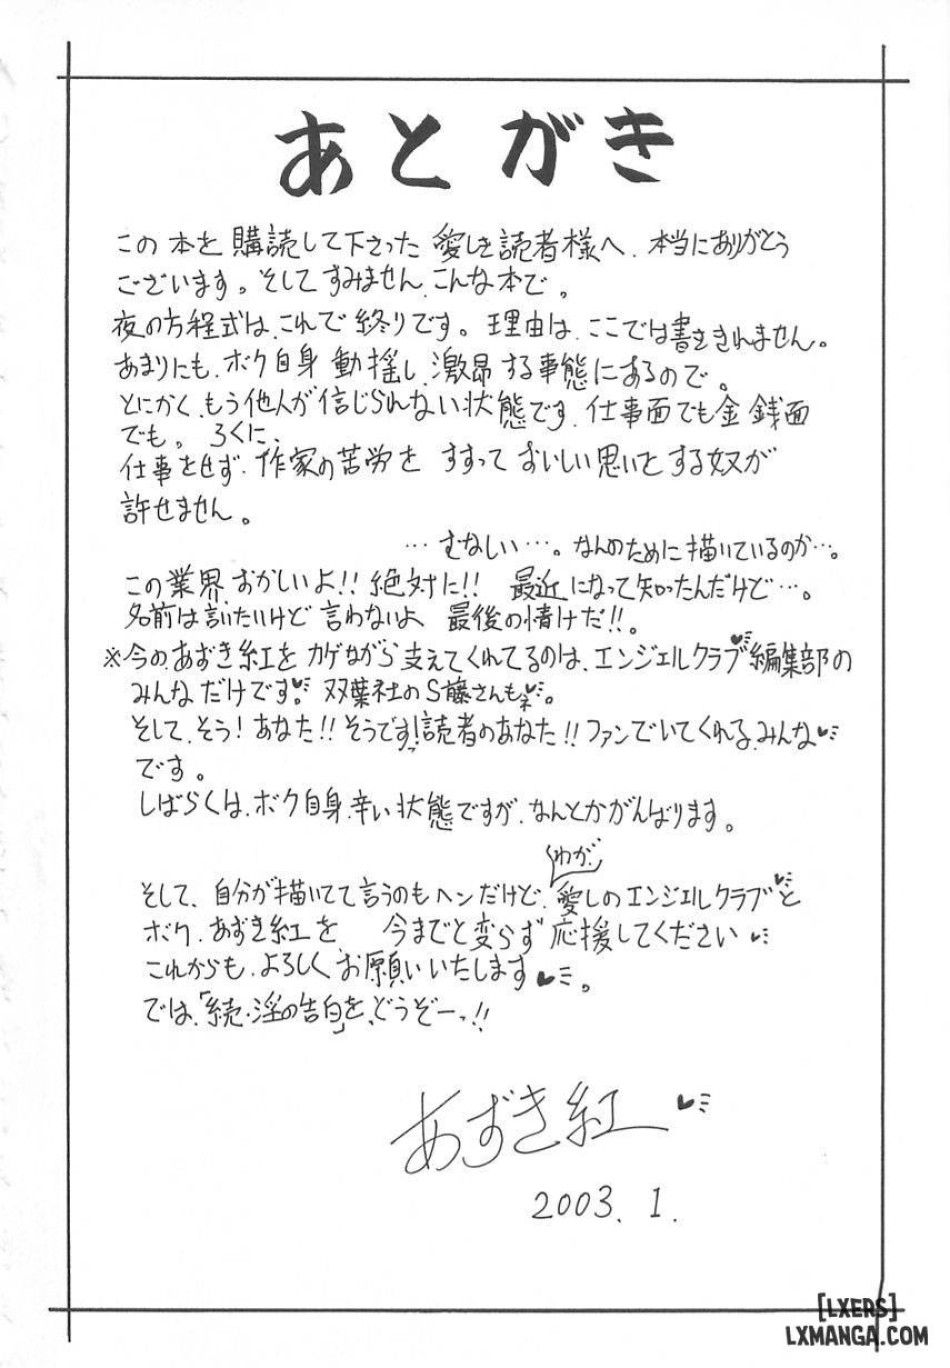 あとがき
この本を購読して下さった愛しき読者様へ、本当にありがとう
ございます。そしてすみません、こんな本で。
夜の方程式は、これで終りです。理由は、ここでは書ききれません。
あまりにも、ボク自身動揺し、激昂する事態にあるので。
とにかく、もう他人が信じられない状態です、仕事面でも金銭面
でも。ろくに、
仕事をせず、作家の苦労をすすっておいしい思いをする奴が
許せません。
…むなしい…。なんのために描いているのか…。
この業界、おかしいよ!!絶対に!!最近になって知ったんだけど…。
名前は言いたいけど言わないよ 最後の情けだ!!。
※今の、あずき紅をカゲながら支えてくれてるのは、エンジェルクラブ♥編集部の
みんなだけです♥。双葉社のS藤さんもネ♥。
そして、そう!あなた!!そうです!読者のあなた!!ファンでいてくれるみんな♥
です。
しばらくは、ボク自身、辛い状態ですが、なんとかがんばります。
わが
そして、自分が描いてて言うのもヘンだけど、愛しのエンジェルクラブ♥と
ボク、あずき紅を、今までと変らず応援してください♥
これからも、よろしくお願いいたします♥。
では、「続・淫の告白」を、どうぞーっ!!
あずき紅♥
2003.1.
[LXERS]
LXMANGA.COM